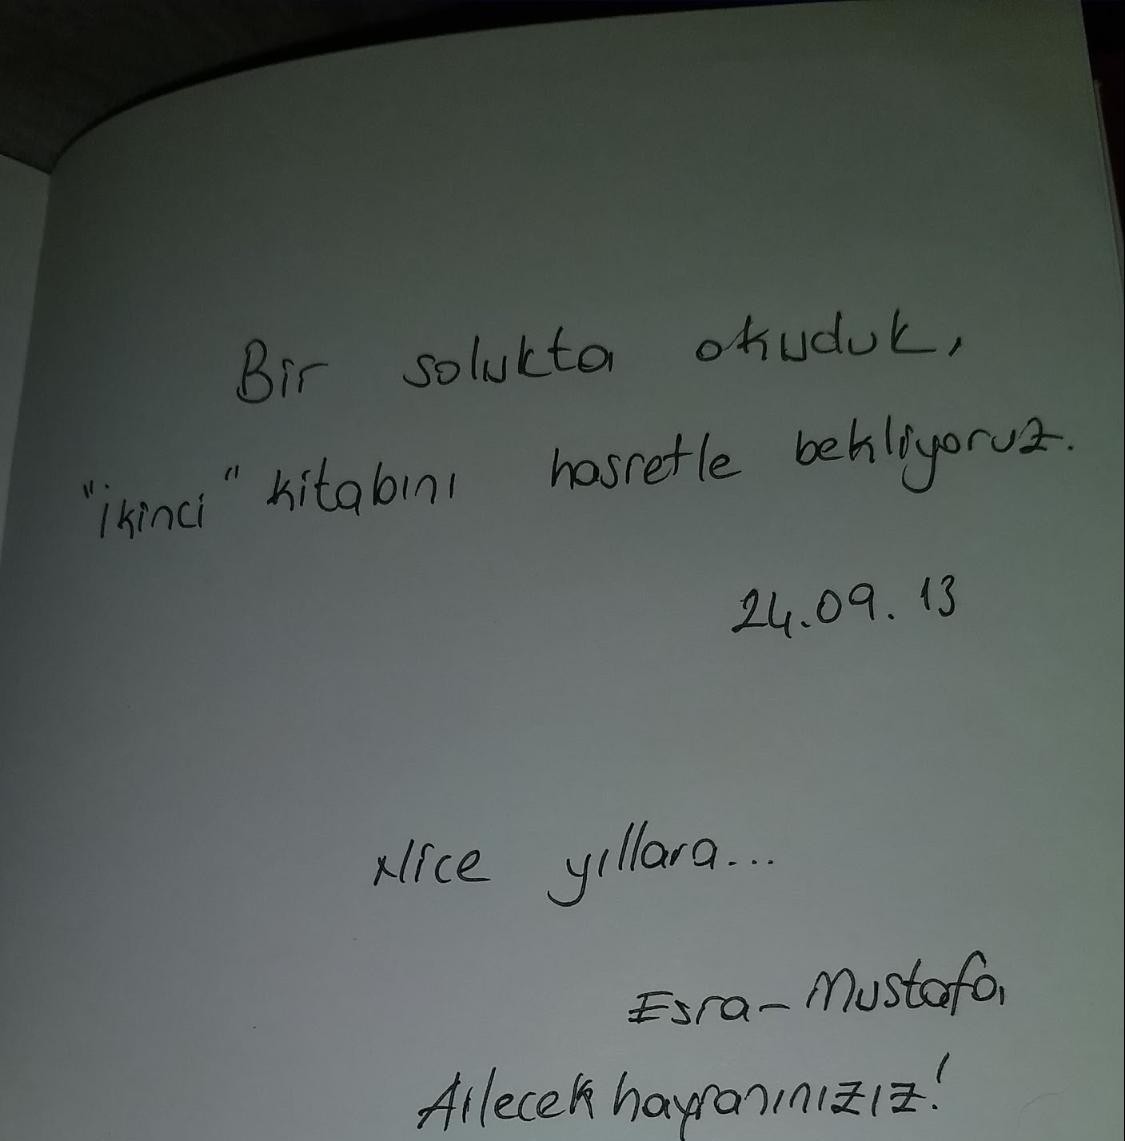 Bir solukta okuduk,
"ikinci" kitabını hasretle bekliyoruz.
24.09.13
Nice yıllara...
Esra-Mustafa
Ailecek hayranınızız!